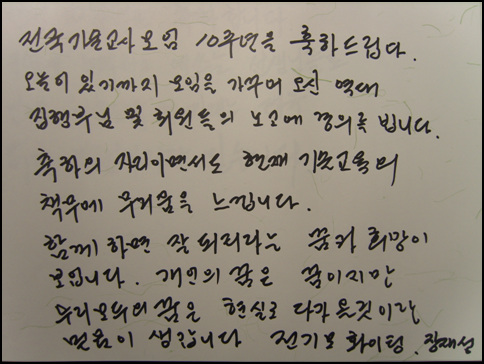 전국기술교사모임 10주년을 축하드립다.
오늘이 있기까지 모임을 가꾸며 오신 역대
집행부님 및 회원들의 노고에 경의를 빕니다.
축하의 자리이면서도 현재 기술교육의
책무에 무거움을 느낍니다.
함께 하면 잘 되리라는 꿈과 희망이
보입니다. 개인의 꿈은 꿈이지만
우리모두의 꿈은 현실로 다가 올것이라
믿음이 생깁니다 전기모 화이팅, 장재선